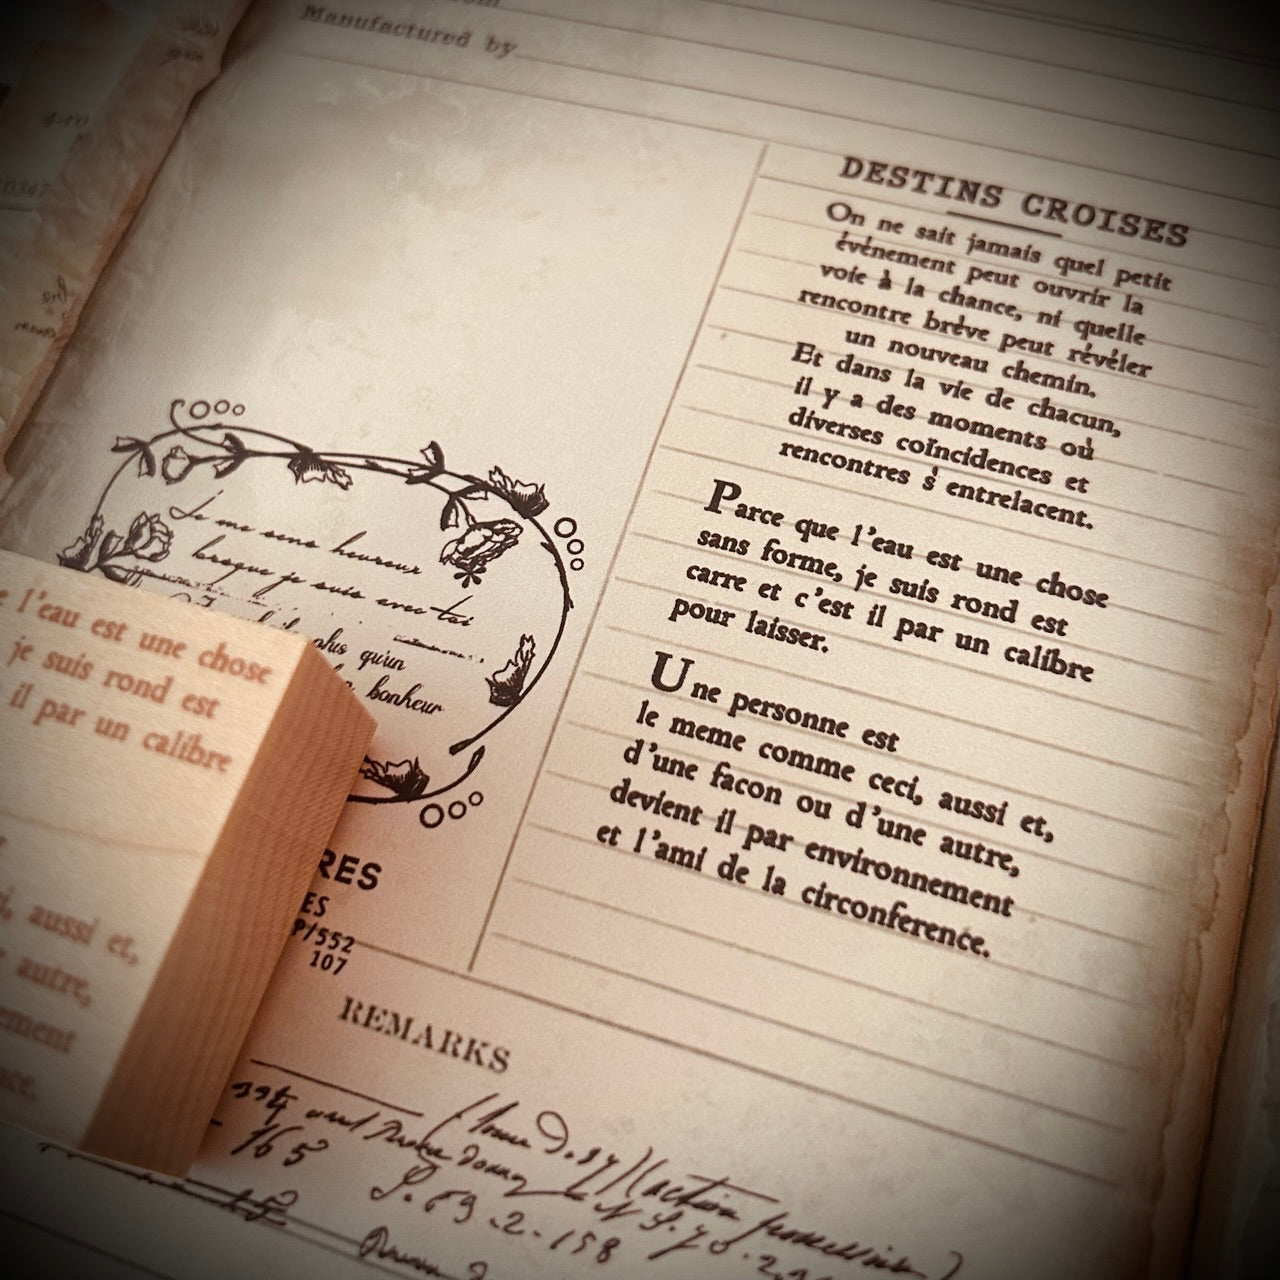 Manufactured by
DESTINS CROISES
On ne sait jamais quel petit
événement peut ouvrir la
voie à la chance, ni quelle
rencontre brève peut révéler
un nouveau chemin.
Et dans la vie de chacun,
il y a des moments où
diverses coïncidences et
rencontres s'entrelacent.
Parce que l'eau est une chose
sans forme, je suis rond est
carre et c'est il par un calibre
pour laisser.
Une personne est
le meme comme ceci, aussi et,
d'une facon ou d'une autre,
devient il par environnement
et l'ami de la circonference.
Je me sens heureux
lorsque je suis avec toi
plus qu'un
bonheur
l'eau est une chose
je suis rond est
il par un calibre
aussi et,
autre,
RES
ES
P/552
107
REMARKS
165
2-158